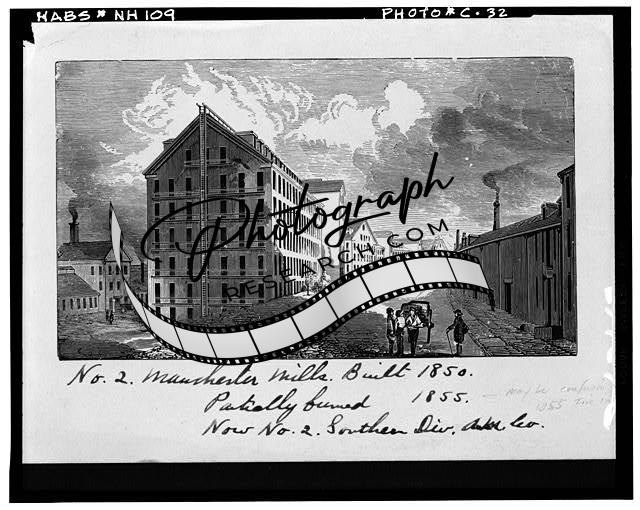 HABS # NH 109
PHOTO # C. 32
Photograph
RESEARCH.COM
No. 2. Manchester Mills. Built 1850.
Partially burned 1855. = may be confusing
1855 fire
Now No. 2. Southern Div. Co.